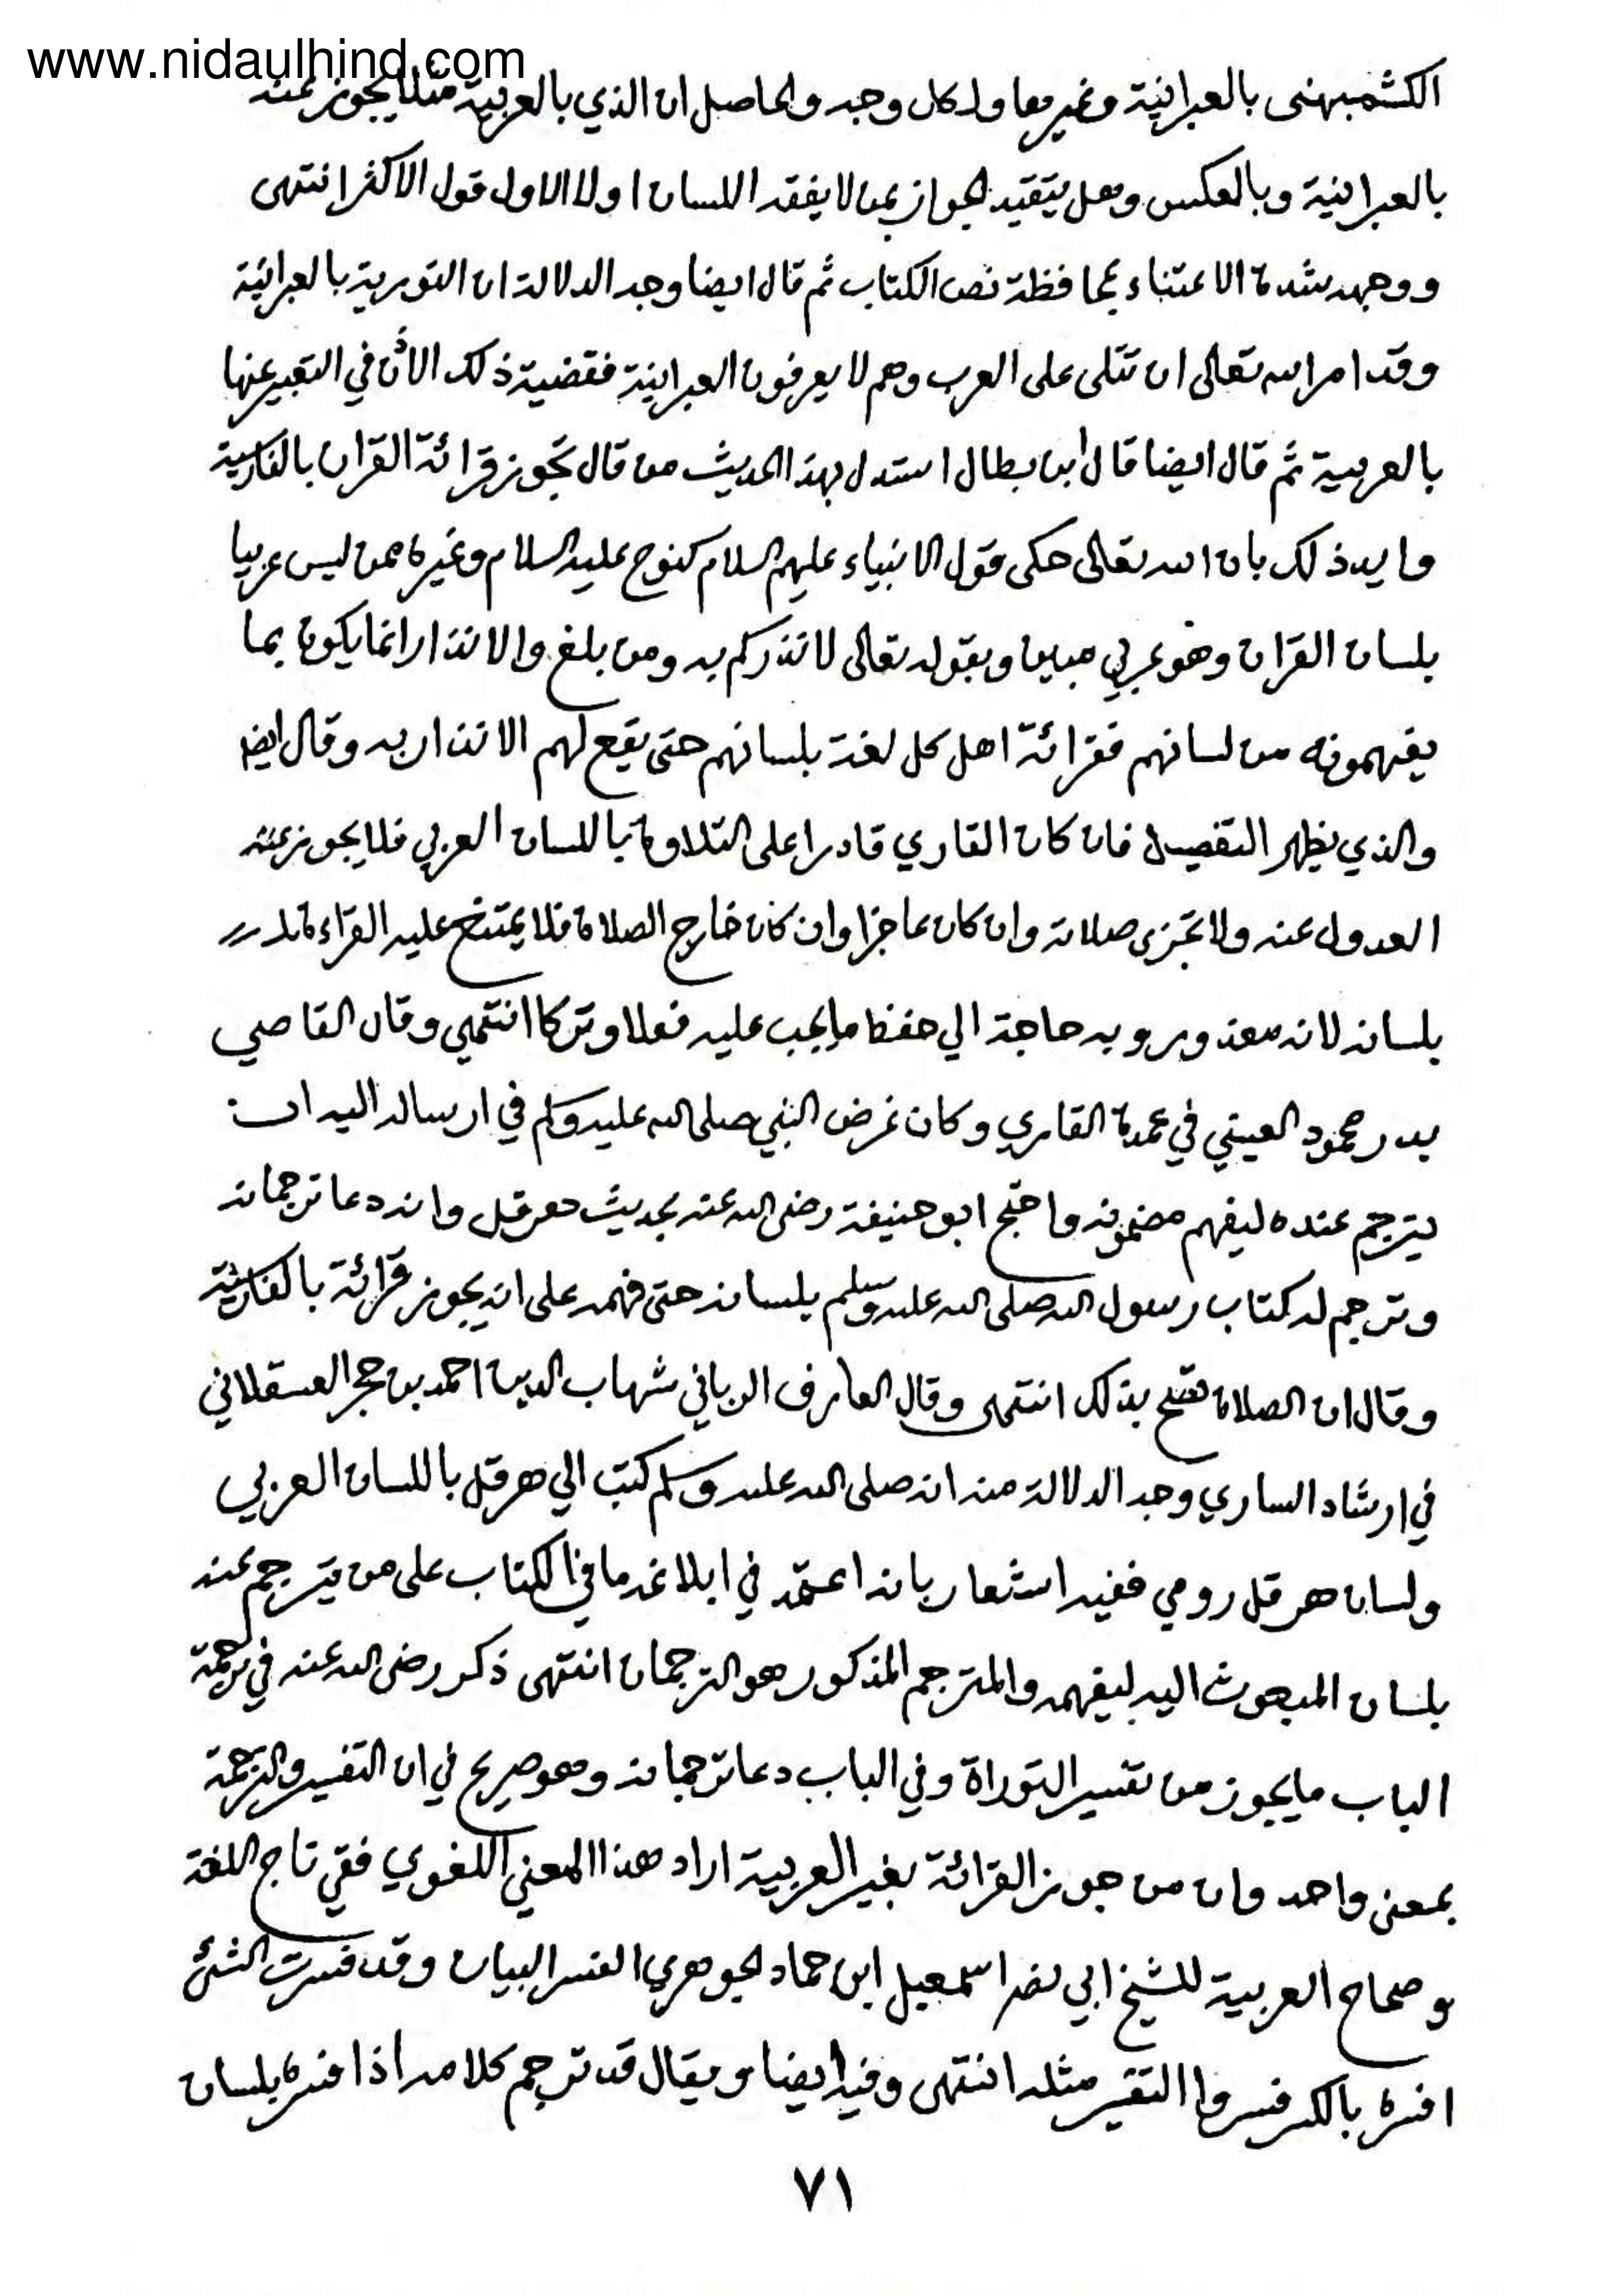 www.nidaulhind.com
الكشميهنى بالعبرانية وغيرها ولكل وجه والحاصل ان الذي بالعربية مثلا يجوز عنه
بالعبرانية وبالعكس وهل يتقيد الجواز بمن لا يفقه اللسان اولا الاول قول الاكثر انتهى
ووجهه شدة الاعتناء بمحافظة نص الكتاب ثم قال ايضا وجه الدلالة ان التورية بالعبرانية
وقد امر الله تعالى ان تتلى على العرب وهم لا يعرفون العبرانية فقضية ذلك الاذن في التعبير عنها
بالعربية ثم قال ايضا قال ابن بطال استدل بهذا الحديث من قال تجوز قرائة القران بالفارسية
وايد ذلك بان الله تعالى حكى قول الانبياء عليهم السلام كنوح عليه السلام وغيره ممن ليس عربيا
بلسان القران وهو عربي مبين وبقوله تعالى لانذركم به ومن بلغ والانذار انما يكون بما
يفهمونه من لسانهم فقرائة اهل كل لغة بلسانهم حتى يقع لهم الانذار به وقال ايضا
والذي يظهر التفصيل فان كان القاري قادرا على التلاوة باللسان العربي فلا يجوز عنه
العدول عنه ولا تجزى صلاته وان كان عاجزا وان كان خارج الصلاة فلا يمتنع عليه القراءة
بلسانه لانه معذور وبه حاجة الي حفظ ما يجب عليه فعلا وتركا انتهي وقال القاضي
بدر محمود العيني في عمدة القاري وكان غرض النبي صلى الله عليه وسلم في ارساله اليه ان
يترجم عنده ليفهم مضمونه واحتج ابو حنيفة رضى الله عنه بحديث هرقل وانه دعا ترجمانه
وترجم له كتاب رسول الله صلى الله عليه وسلم بلسانه حتى فهمه على انه يجوز قرائة بالفارسية
وقال ان الصلاة تصح بذلك انتهى وقال العارف الرباني شهاب الدين احمد بن حجر العسقلاني
في ارشاد الساري وجه الدلالة منه انه صلى الله عليه وسلم كتب الي هرقل باللسان العربي
ولسان هرقل رومي ففيه اشعار بانه اعتمد في ابلاغه ما في الكتاب على من يترجم عنه
بلسان المبعوث اليه ليفهمه والمترجم المذكور هو الترجمان انتهى ذكر رضى الله عنه في ترجمة
الباب ما يجوز من تفسير التوراة وفي الباب دعا ترجمانه وهو صريح في ان التفسير والترجمة
بمعنى واحد وان من جوز القرائة بغير العربية اراد هذا المعني اللغوي ففي تاج اللغة
و صحاح العربية للشيخ ابي نصر اسمعيل ابن حماد الجوهري الفسر البيان وقد فسرت الشئ
افسره بالكسر فسرا والتفسير مثله انتهى وفيه ايضا ويقال قد ترجم كلامه اذا فسره بلسان
٧١